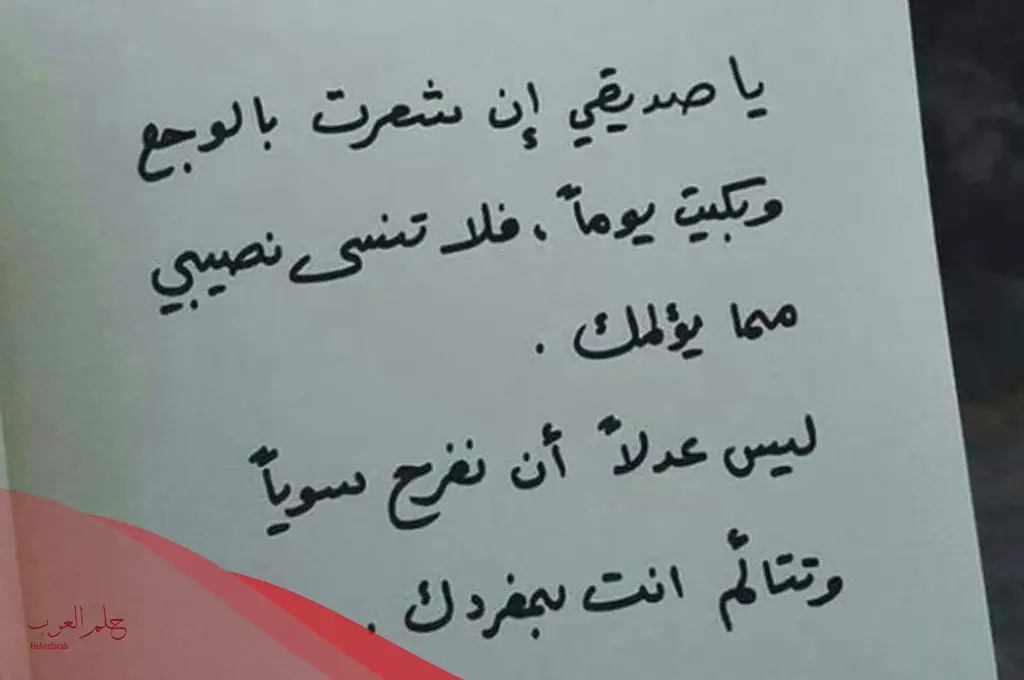 يا صديقي إن شعرت بالوجع
وبكيت يوماً ، فلا تنسى نصيبي
مما يؤلمك .
ليس عدلاً أن نفرح سوياً
وتتألم انت بمفردك .
حلم العرب
Helmelarab